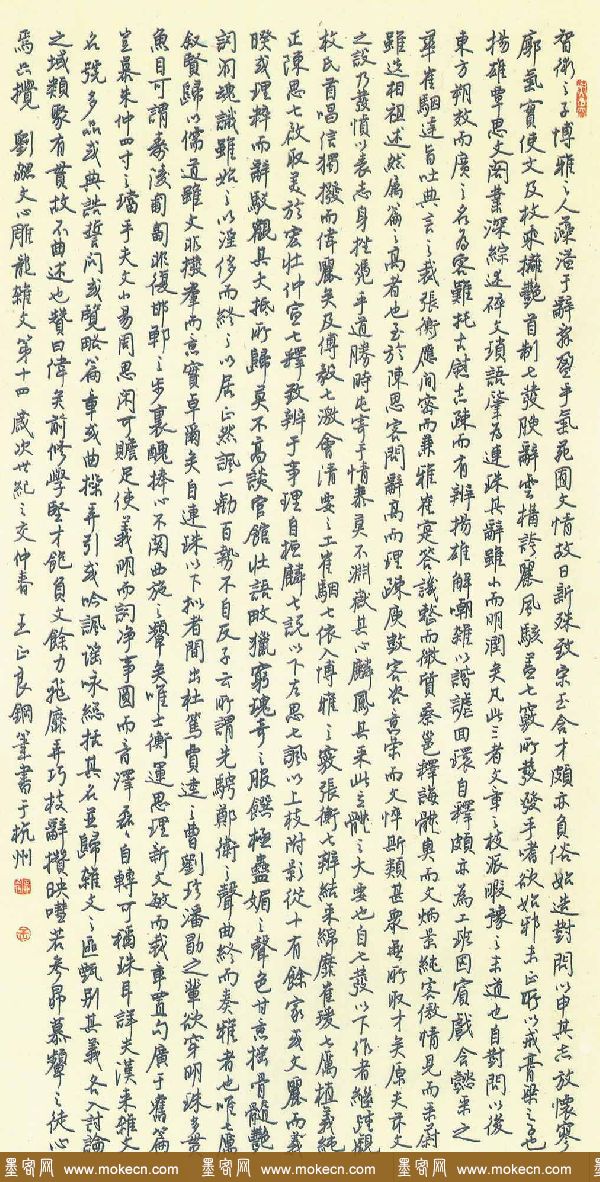 智術之子博雅之人藻溢于辭辭盈乎氣苑囿文情故日新殊致宗玉含才頗亦負俗始造對問以申其志放懷寥
廓氣實使文及枚乘摛艷首制七發腴辭雲構誇麗風駭蓋七竅所發發乎嗜欲始邪末正所以戒膏粱之子也
揚雄覃思文閣業深綜述碎文瑣語肇為連珠其辭雖小而明潤矣凡此三者文章之枝派暇豫之末造也自對問以後
東方朔效而廣之名為客難托古慰志疎而有辨揚雄解嘲雜以諧謔回環自釋頗亦為工班固賓戲含懿采之
華崔駰達旨吐典言之裁張衡應間密而兼雅崔寔答譏整而微質蔡邕釋誨體奧而文炳景純客傲情見而采蔚
雖迭相祖述然屬篇之高者也至於陳思客問辭高而理疎庾敳客咨意榮而文悴斯類甚衆無所取才矣原夫茲文
之設乃發憤以表志身挫憑乎道勝時屯寄于情泰莫不淵嶽其心麟鳳其采此立體之大要也自七發以下作者繼踵觀
枚氏首唱信獨拔而偉麗矣及傅毅七激會清要之工崔駰七依入博雅之巧張衡七辨結采綿靡崔瑗七厲植義純
正陳思七啟取美於宏壯仲宣七釋致辨于事理自桓麟七說以下左思七諷以上枝附影從十有餘家或文麗而義
暌或理粹而辭駁觀其大抵所歸莫不高談宮館壯語畋獵窮瑰奇之服饌極蠱媚之聲色甘意搖骨髓艷
詞洞魂識雖始之以淫侈而終之以居正然諷一勸百勢不自反子云所謂先騁鄭衛之聲曲終而奏雅者也唯七厲
叙賢歸以儒道雖文非拔羣而意實卓爾矣自連珠以下擬者間出杜篤賈逵之曹劉珍潘勖之輩欲穿明珠多貫
魚目可謂壽陵匍匐非復邯鄲之步里醜捧心不關西施之顰矣唯士衡運思理新文敏而裁章置句廣于舊篇
豈慕朱仲四寸之璫乎夫文小易周思閑可贍足使義明而詞凈事圓而音澤磊磊自轉可稱珠耳詳夫漢來雜文
名號多品或典誥誓問或覽略篇章或曲操弄引或吟諷謠咏總括其名並歸雜文之區甄別其義各入討論
之域類聚有貫故不曲述也贊曰偉矣前修學堅才飽負文餘力飛靡弄巧枝辭攢映嘒若參昴慕顰之徒心
焉只攪 劉勰文心雕龍雜文第十四 歲次世紀之交仲春 王正良鋼筆書于杭州
墨客网 www.mokecn.com 墨客网 www.mokecn.com 墨客网 www.mokecn.com